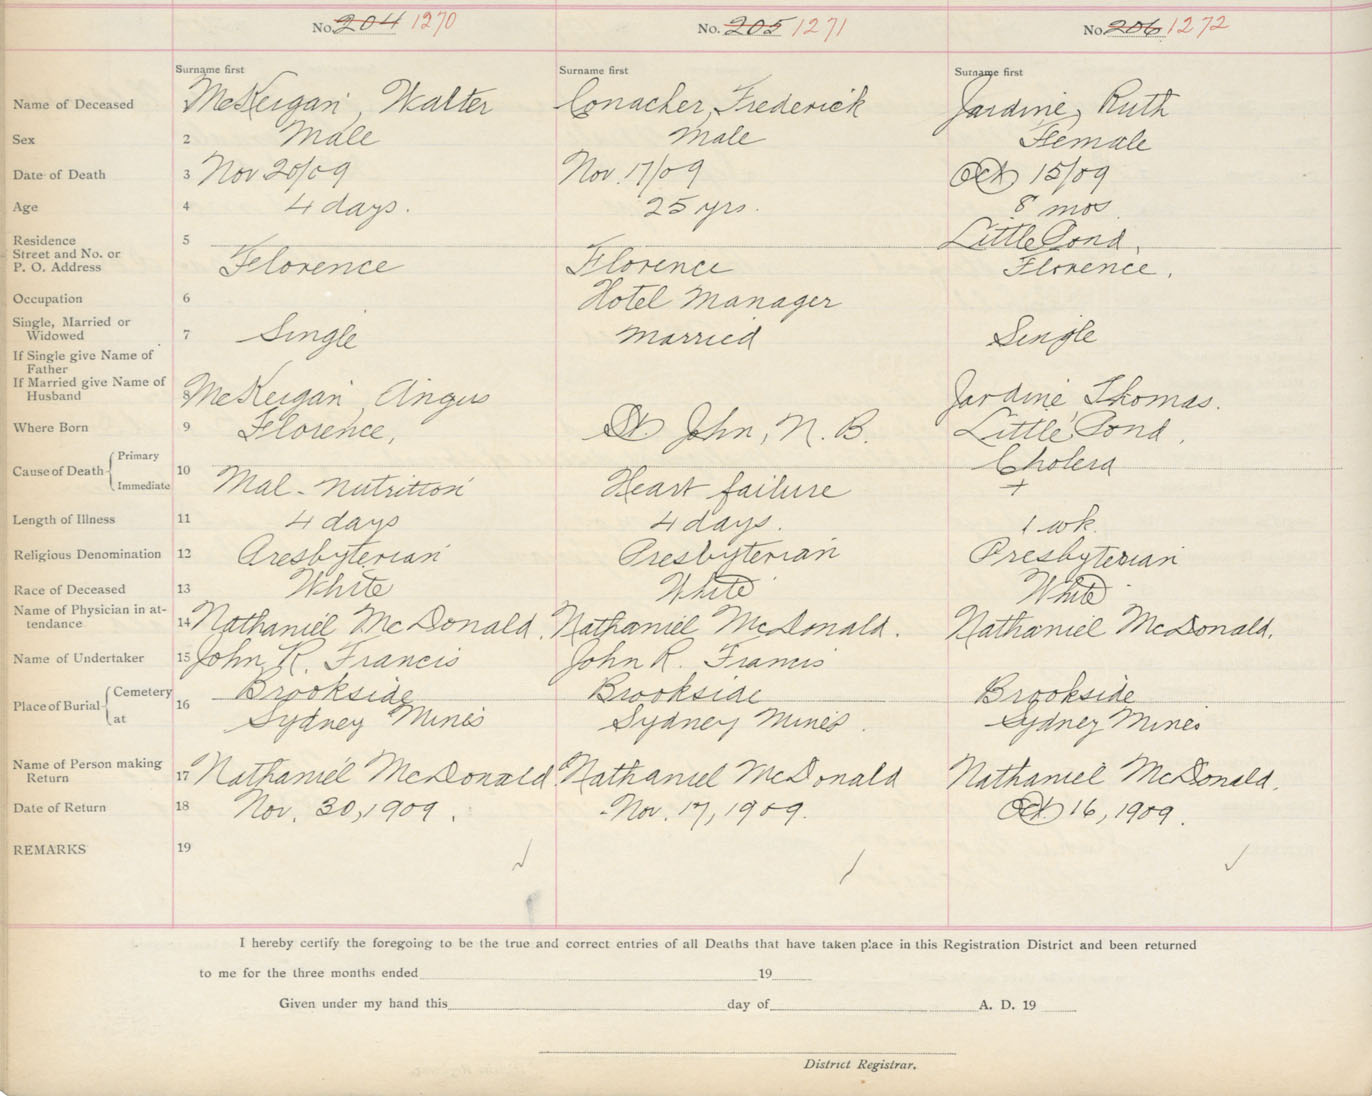 No. 204 1270 No. 205 1271 No. 206 1272
Surname first Surname first Surname first
Name of Deceased McKeigan, Walter Conacher, Frederick Jardine, Ruth
Sex 2 Male Male Female
Date of Death 3 Nov 20/09 Nov. 17/09 Oct 15/09
Age 4 4 days. 25 yrs. 8 mos
Residence 5 Little Pond,
Street and No. or
P. O. Address Florence Florence Florence.
Occupation 6 Hotel Manager
Single, Married or
Widowed 7 Single Married Single
If Single give Name of
Father
If Married give Name of
Husband 8 McKeigan, Angus Jardine Thomas.
Where Born 9 Florence, St. John, N. B. Little Pond,
Cause of Death Primary 10 Cholera
Immediate Mal-nutrition Heart failure +
Length of Illness 11 4 days 4 days. 1 wk.
Religious Denomination 12 Presbyterian Presbyterian Presbyterian
Race of Deceased 13 White White White
Name of Physician in at-
tendance 14 Nathaniel McDonald. Nathaniel McDonald. Nathaniel McDonald.
Name of Undertaker 15 John R. Francis John R. Francis
Place of Burial Cemetery 16 Brookside Brookside Brookside
at Sydney Mines Sydney Mines. Sydney Mines
Name of Person making
Return 17 Nathaniel McDonald. Nathaniel McDonald Nathaniel McDonald.
Date of Return 18 Nov. 30, 1909. Nov. 17, 1909. Oct. 16, 1909.
REMARKS 19
I hereby certify the foregoing to be the true and correct entries of all Deaths that have taken place in this Registration District and been returned
to me for the three months ended 19
Given under my hand this day of A. D. 19
District Registrar.